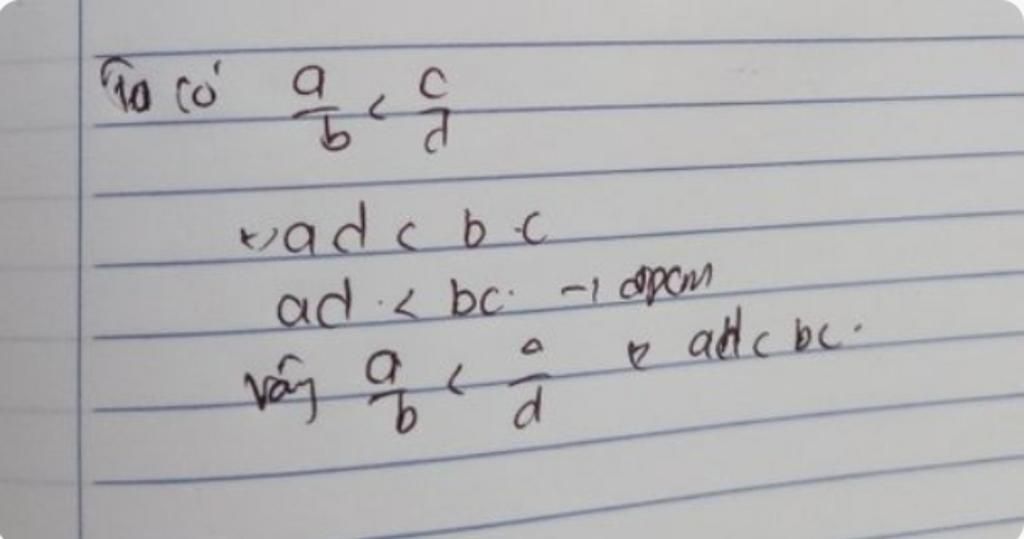 Ta có a/b < c/d
<=> ad < b.c
ad < bc. → đpcm
Vậy a/b < c/d <=> ad < bc.